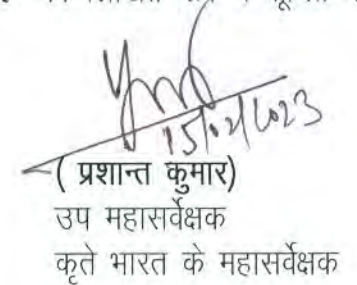 15/02/2023
( प्रशान्त कुमार)
उप महासर्वेक्षक
कृते भारत के महासर्वेक्षक